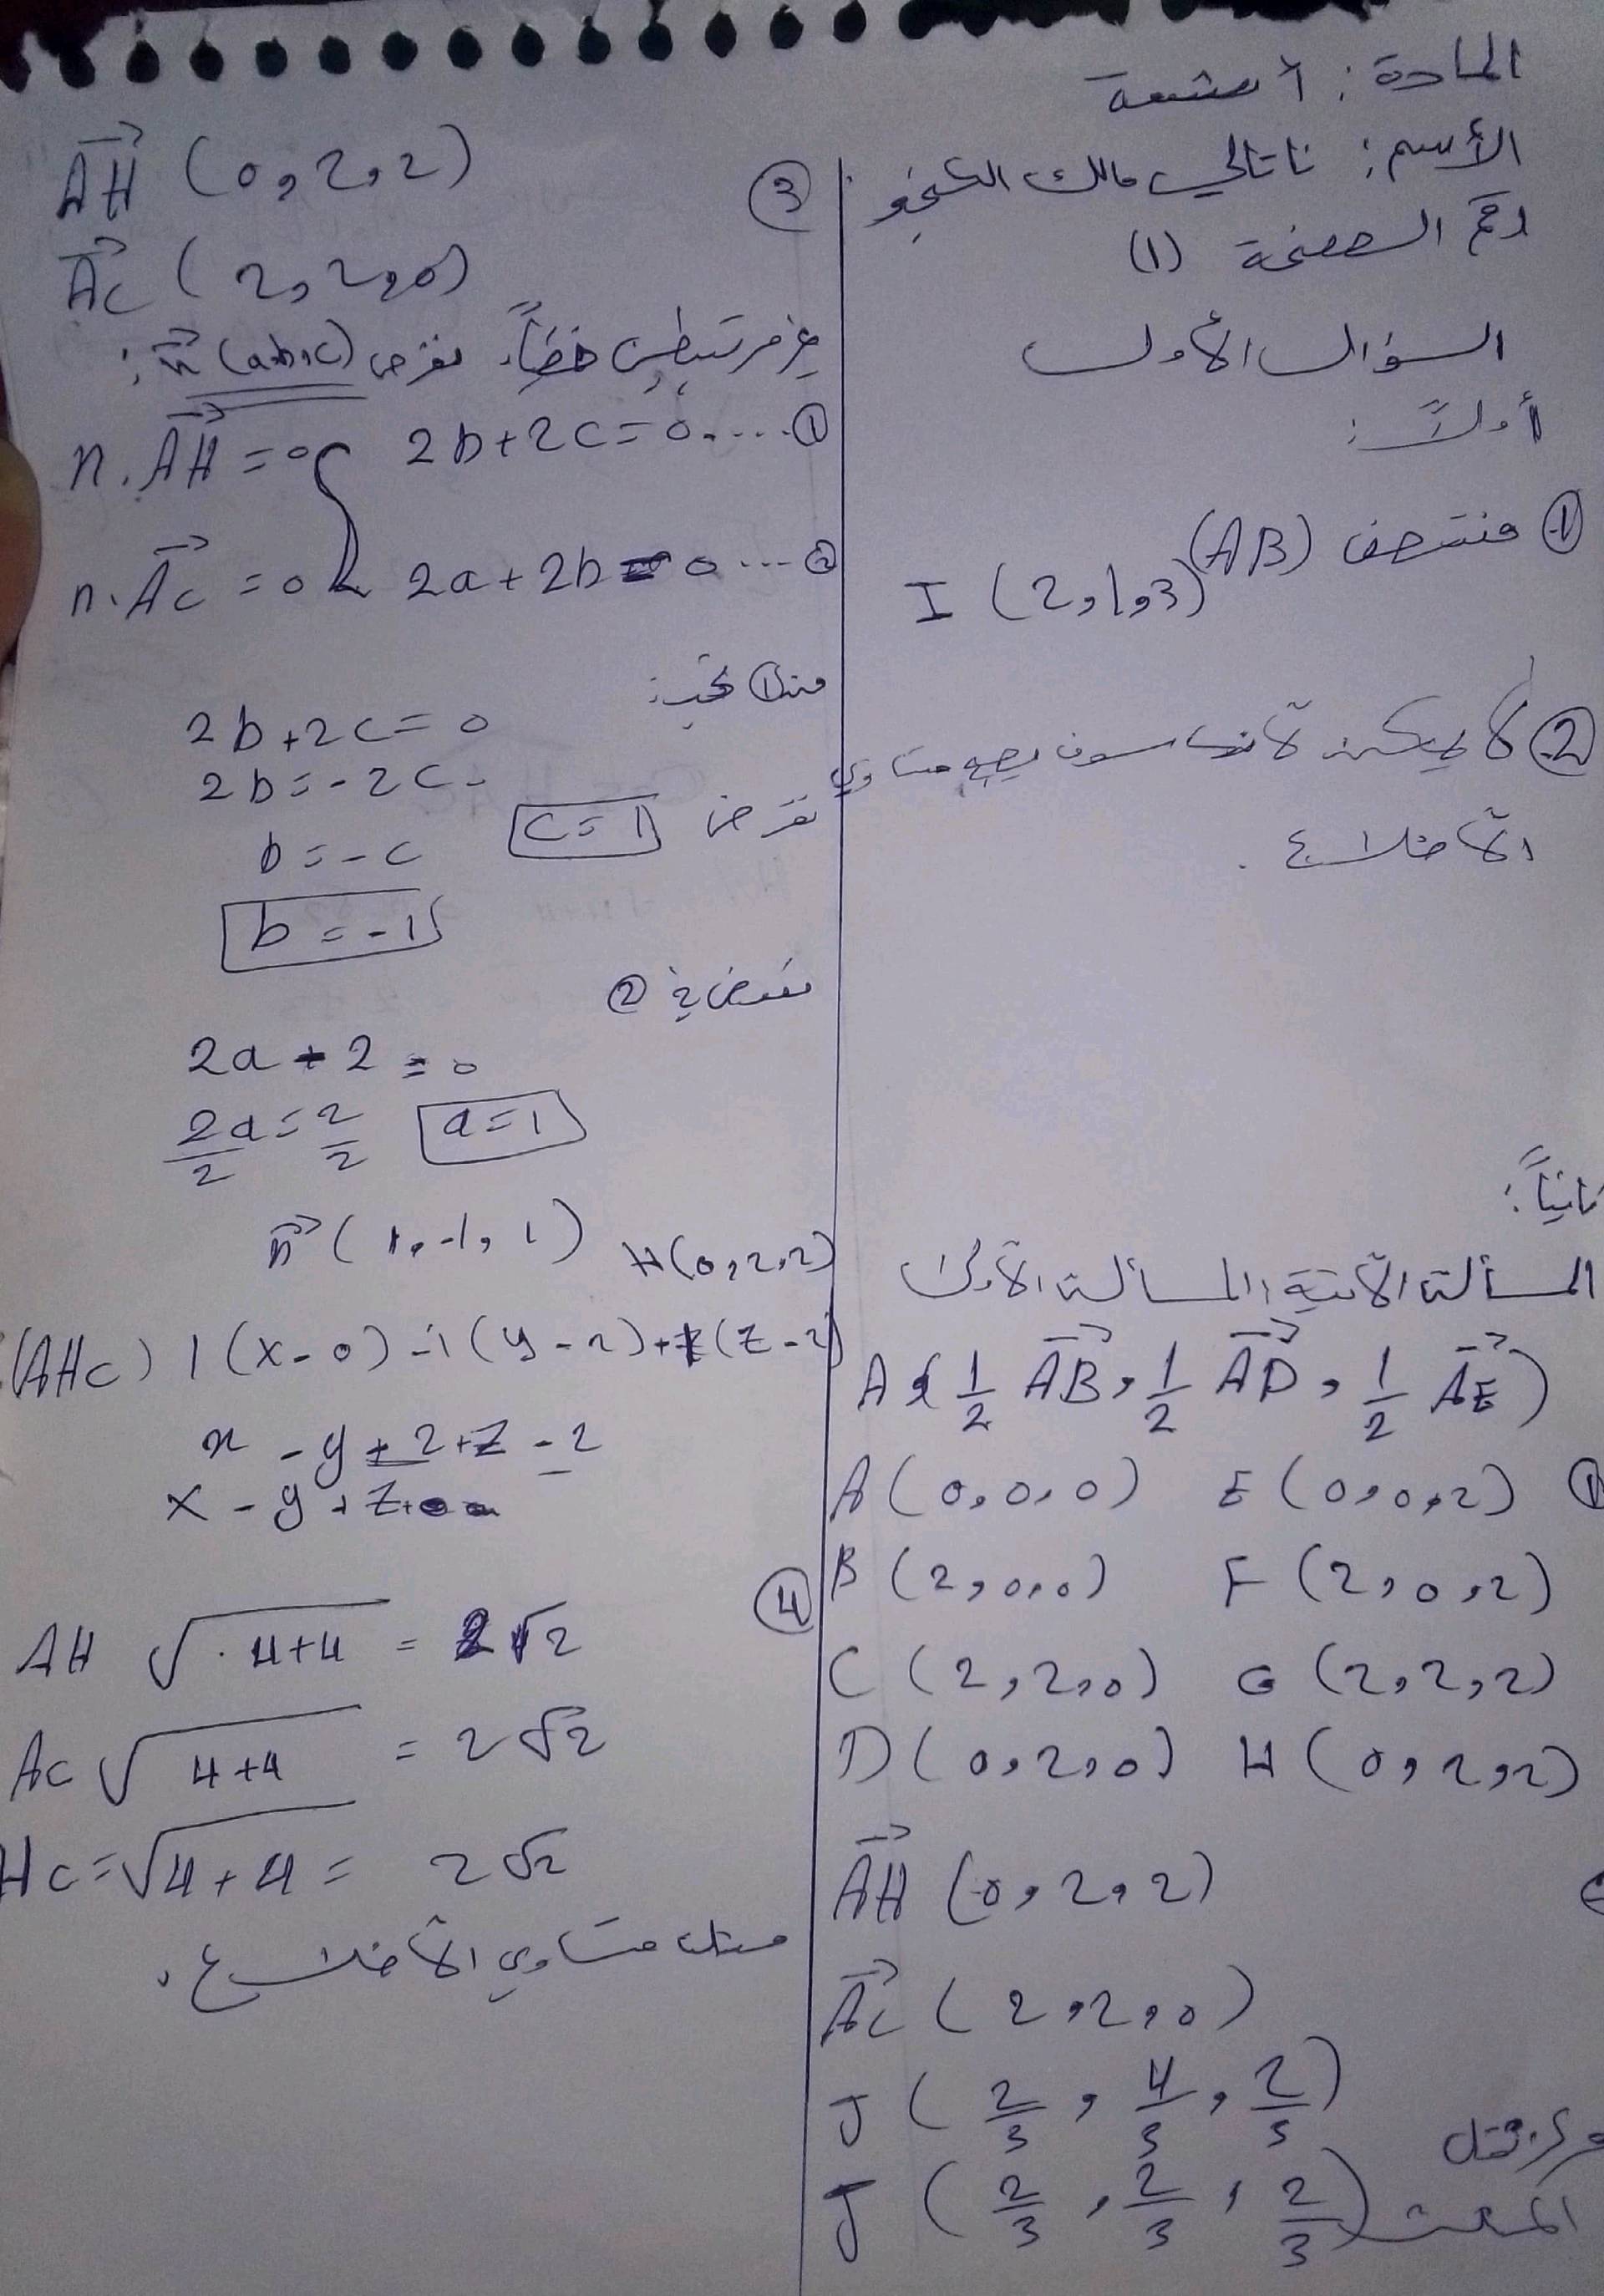 المادة: أشعة
الأسم: ناتالي مالك
رقم الصفحة (1)
السؤال الأول
أولاً:
① منتصف (AB)
I (2,1,3)
② لا يمكن لأنها سوف يصبح متساوي
الأضلاع.
ثانياً:
المسألة الآتية: المسألة الأولى
A (1/2 AB→, 1/2 AD→, 1/2 AE→)
① A (0,0,0) E (0,0,2)
B (2,0,0) F (2,0,2)
C (2,2,0) G (2,2,2)
D (0,2,0) H (0,2,2)
AH→ (0,2,2)
AC→ (2,2,0)
J (2/3, 4/3, 2/3)
مركز ثقل
المثلث J (2/3, 2/3, 2/3)
③ AH→ (0,2,2)
AC→ (2,2,0)
غير مرتبطين خطياً، نفرض n→(a,b,c):
n.AH→ = 0 2b+2c=0.....①
n.AC→ = 0 2a+2b=0...②
من ① نجد:
2b+2c=0
2b=-2c
b=-c نفرض c=1
b=-1
نعوض في ②
2a-2=0
2a/2=2/2 a=1
n→(1,-1,1) H(0,2,2)
(AHC) 1(x-0)-1(y-2)+1(z-2)
x-y+2+z-2
x-y+z=0
④
AH √4+4 = 2√2
AC √4+4 = 2√2
HC=√4+4= 2√2
مثلث متساوي الأضلاع.